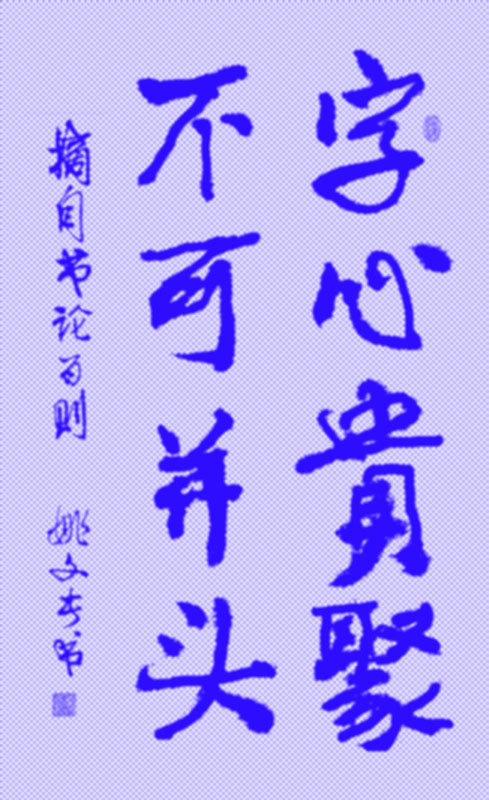 字心貴聚
不可并头
摘自书论百则 姚文长书